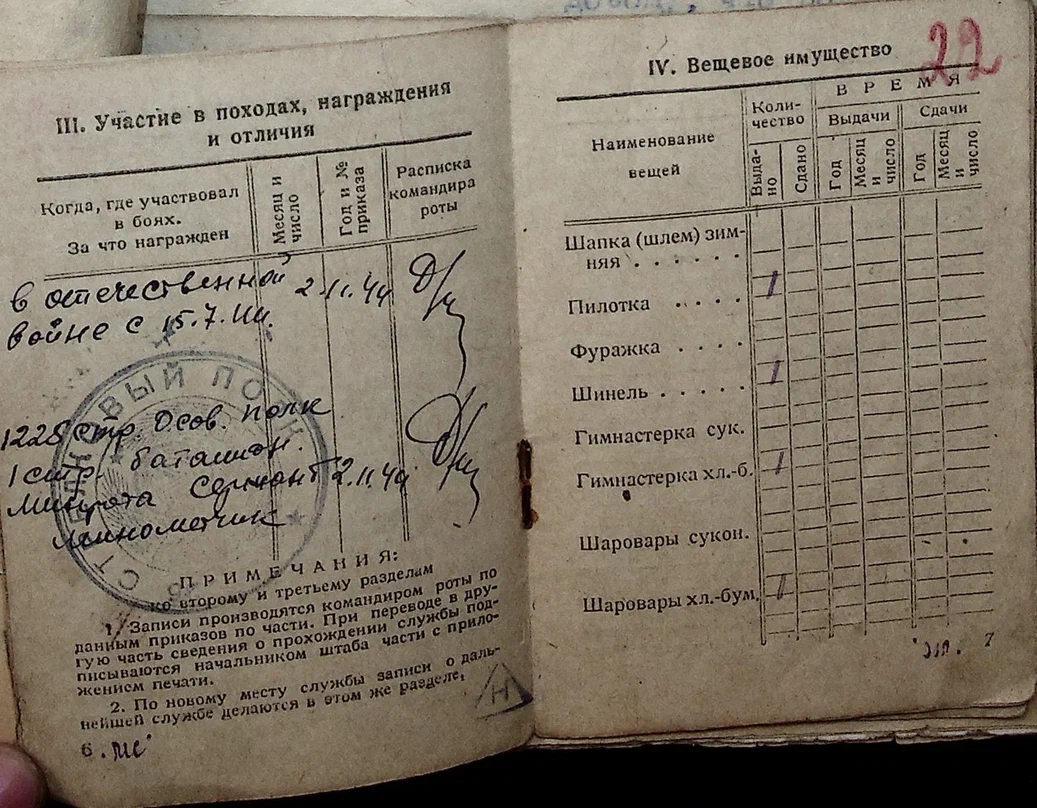 III. Участие в походах, награждения
и отличия
Когда, где участвовал
в боях.
За что награжден
Месяц и
число
Год и №
приказа
Расписка
командира
роты
в отечественной
войне с 15.7.
2.11.44
СТРЕЛКОВЫЙ ПОЛК
1225 стр. Осов. полк
1 стр. баталион.
Минрота Сержант 2.11.44
Минометчик
ПРИМЕЧАНИЯ:
ко второму и третьему разделам
1. Записи производятся командиром роты по
данным приказов по части. При переводе в дру-
гую часть сведения о прохождении службы под-
писываются начальником штаба части с прило-
жением печати.
2. По новому месту службы записи о даль-
нейшей службе делаются в этом же разделе.
Н
6
22
IV. Вещевое имущество
Наименование
вещей
Коли-
чество
Выда-
но
Сдано
ВРЕМЯ
Выдачи
Год
Месяц
и
число
Сдачи
Год
Месяц
и
число
Шапка (шлем) зим-
няя . . . . . .
Пилотка . . . . 1
Фуражка . . . .
Шинель . . . . . 1
Гимнастерка сук.
Гимнастерка хл.-б. 1
Шаровары сукон.
Шаровары хл.-бум. 1
7